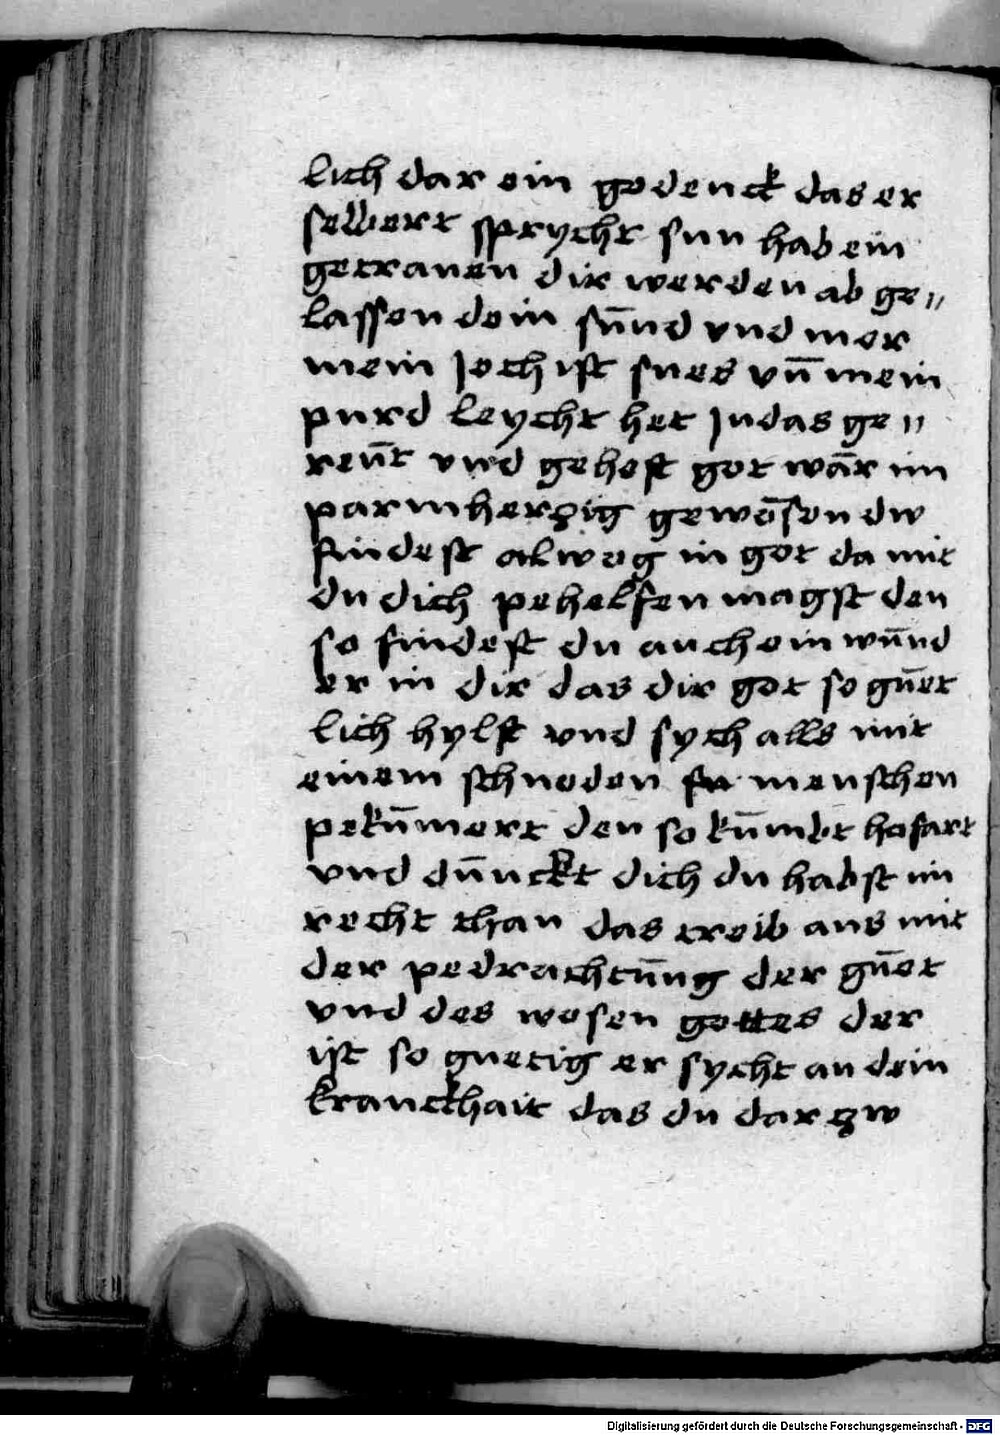 lich dar ein gedenck das er
selbert sprycht sun hab ein
getrauen dir werden ab ge〃
lassen dein sūnd vnd mer
mein Joch ist sues vn̄ mein
purd leycht het Judas ge〃
reūt vnd gehoft got wār im
parmherczig gewēsen dw
findest alweg in got da mit
du dich pehelfen magst den
so findest du auch ein wūnd
er in dir das dir got so gūet
lich hylft vnd sych alls mit
einem schneden menschen
pekūmert den so kūmbt hofart
vnd dūnckt dich du habst im
recht than das treib aus mit
der pedrachtūng der gūet
vnd des wesen gottes der
ist so guetig er sycht an dein
kranckhait das du dar zw
Digitalisierung gefördert durch die Deutsche Forschungsgemeinschaft - DFG